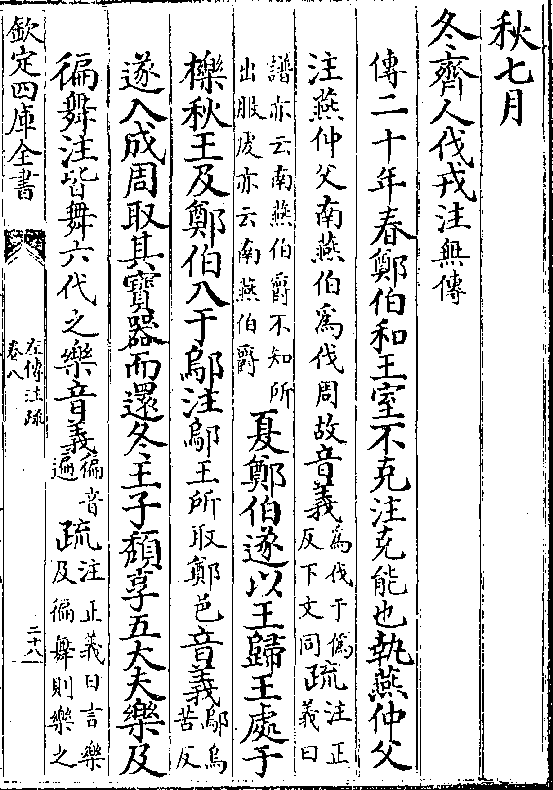 秋七月
冬齊人伐戎注無傳
傳二十年春鄭伯和王室不克注克能也執燕仲父
注燕仲父南燕伯為伐周故音義為伐于偽反下文同疏注正義曰
譜亦云南燕伯爵不知所出服虔亦云南燕伯爵夏鄭伯遂以王歸王處于
櫟秋王及鄭伯入于鄔注鄔王所取鄭邑音義鄔烏苦反
遂入成周取其寶器而還冬王子頹享五大夫樂及
徧舞注皆舞六代之樂音義徧音遍疏注正義曰言樂及徧舞則樂之
欽定四庫全書
左傳注疏
卷八
二十八